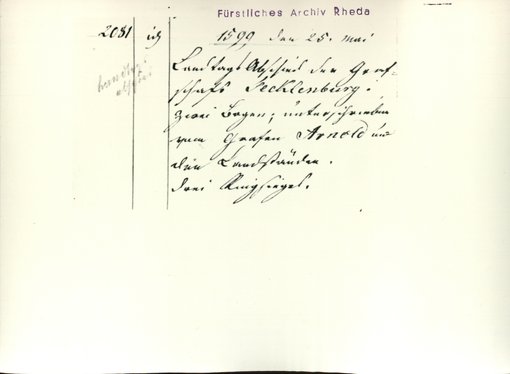 Fürstliches Archiv Rheda
2081
1599 den 25. Mai
Landtags Abschied der Graf-
schaft Tecklenburg.
Zwei Bogen; unterschrieben
vom Grafen Arnold und
den Landständen.
Drei Ringsiegel.